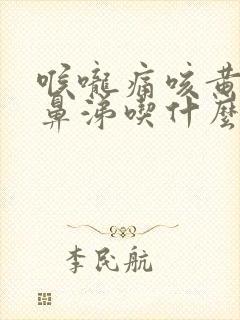 喉嚨痛咳黃
鼻涕喫什麼
李民航